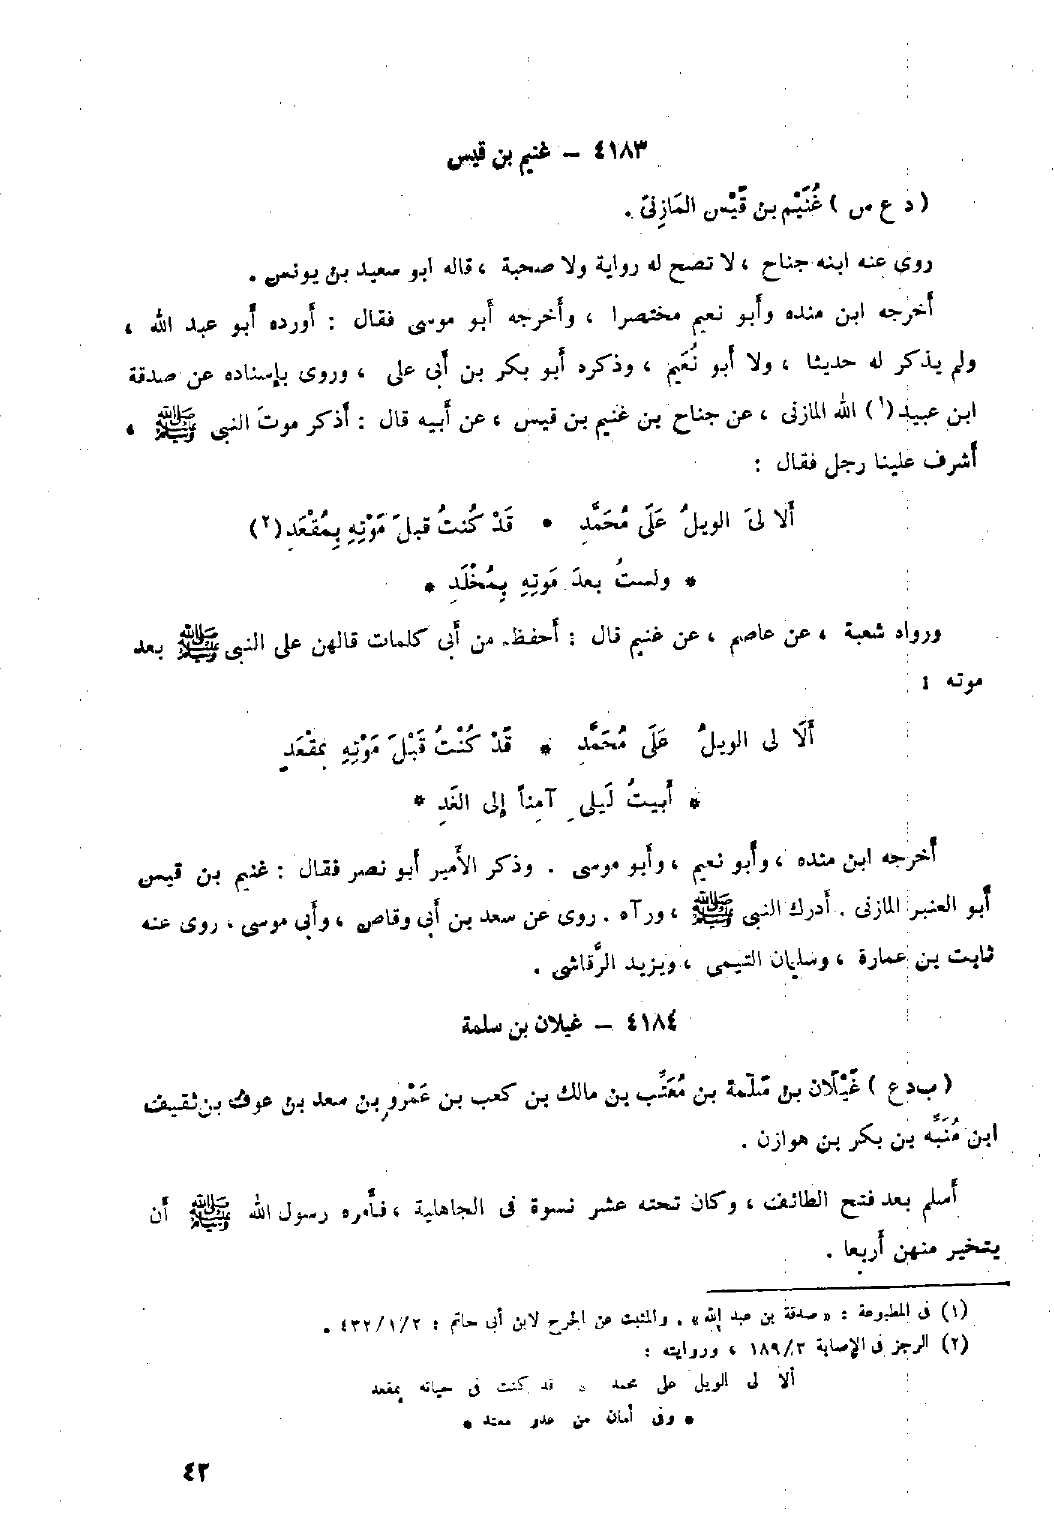 ٤١٨٣ – غنيم بن قيس
( د ع س ) غُنَيْم بن قَيْس المَازِنىّ .
روى عنه ابنه جناح ، لا تصح له رواية ولا صحبة ، قاله ابو سعيد بن يونس .
أخرجه ابن منده وأبو نعيم مختصرا ، وأخرجه أبو موسى فقال : أورده أبو عبد الله ،
ولم يذكر له حديثا ، ولا أبو نُعَيم ، وذكره أبو بكر بن أبى على ، وروى بإسناده عن صدقة
ابن عبيد (١) الله المازنى ، عن جناح بن غنيم بن قيس ، عن أبيه قال : أذكر موتَ النبى ﷺ ،
أشرف علينا رجل فقال :
أَلا لىَ الويلُ عَلَى مُحَمَّدِ * قَدْ كُنتُ قبلَ مَوْتِهِ بِمُقْعَدِ (٢)
* ولستُ بعدَ مَوتِهِ بِمُخْلَدِ *
ورواه شعبة ، عن عاصم ، عن غنيم قال : أحفظ من أبى كلمات قالهن على النبى ﷺ بعد
موته :
أَلَا لى الويلُ عَلَى مُحَمَّدِ * قَدْ كُنْتُ قَبْلَ مَوْتِهِ بمقْعَدِ
* أَبيتُ لَيلى آمِناً إلى الغَدِ *
أخرجه ابن منده ، وأبو نعيم ، وأبو موسى . وذكر الأمير أبو نصر فقال : غنيم بن قيس
أبو العنبر المازنى . أدرك النبى ﷺ ، ورآه . روى عن سعد بن أبى وقاص ، وأبى موسى ، روى عنه
ثابت بن عمارة ، وسليمان التيمى ، ويزيد الرَّقاشى .
٤١٨٤ – غيلان بن سلمة
( ب د ع ) غَيْلَان بن سَلَمة بن مُعَتِّب بن مالك بن كعب بن عَمْرو بن سعد بن عوف بن ثقيف
ابن مُنَبِّه بن بكر بن هوازن .
أسلم بعد فتح الطائف ، وكان تحته عشر نسوة فى الجاهلية ، فأمره رسول الله ﷺ أن
يتخير منهن أربعا .
(١) فى المطبوعة : « صدقة بن عبد الله » . والمثبت عن الجرح لابن أبى حاتم : ٤٣٢/١/٢ .
(٢) الرجز فى الإصابة ١٨٩/٣ ، وروايته :
ألا لى الويل على محمد * قد كنت فى حياته بمقعد
* وفى أمان من عدو معتد *
٤٣